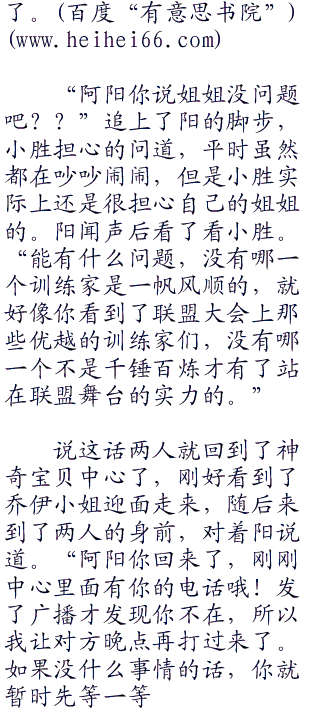 了。(百度“有意思书院”)
(www.heihei66.com)
“阿阳你说姐姐没问题
吧？？”追上了阳的脚步，
小胜担心的问道，平时虽然
都在吵吵闹闹，但是小胜实
际上还是很担心自己的姐姐
的。阳闻声后看了看小胜。
“能有什么问题，没有哪一
个训练家是一帆风顺的，就
好像你看到了联盟大会上那
些优越的训练家们，没有哪
一个不是千锤百炼才有了站
在联盟舞台的实力的。”
说这话两人就回到了神
奇宝贝中心了，刚好看到了
乔伊小姐迎面走来，随后来
到了两人的身前，对着阳说
道。“阿阳你回来了，刚刚
中心里面有你的电话哦！发
了广播才发现你不在，所以
我让对方晚点再打过来了。
如果没什么事情的话，你就
暂时先等一等